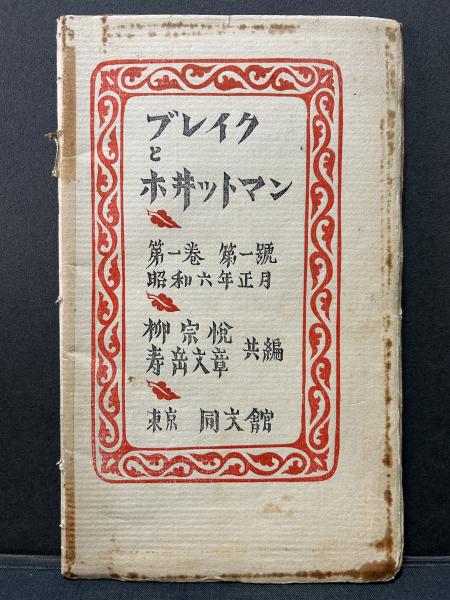 ブレイク
と
ホヰットマン
第一巻 第一號
昭和六年正月
柳宗悦
寿岳文章 共編
東京 同文館